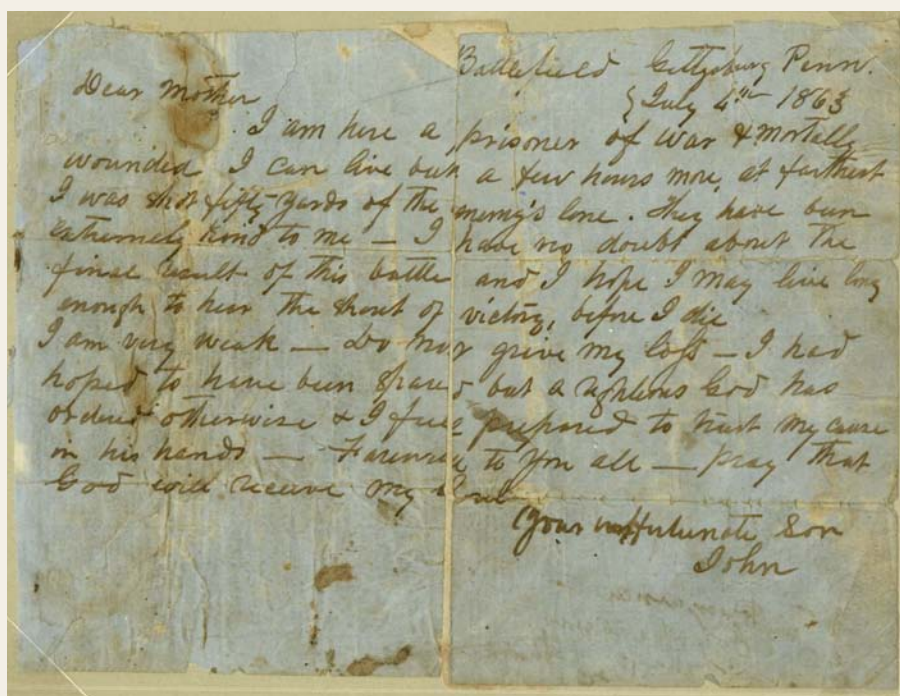 Battlefield Gettysburg Penn.
July 4th 1863
Dear Mother
I am here a prisoner of war & mortally
wounded I can live but a few hours more, at farthest
I was shot fifty yards of the enemy's line. They have been
extremely kind to me — I have no doubt about the
final result of this battle and I hope I may live long
enough to hear the shout of victory, before I die
I am very weak — Do not grieve my loss — I had
hoped to have been spared but a righteous God has
ordered otherwise & I feel prepared to trust my cause
in his hands — Farewell to you all — Pray that
God will receive my soul
Your unfortunate Son
John